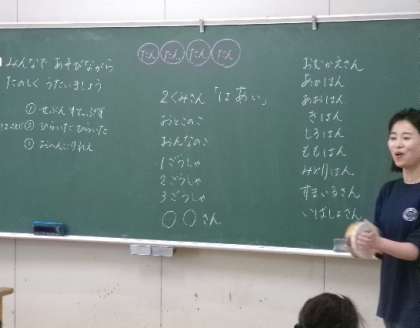 みんなで あそびながら
たのしく うたいましょう
① せぶん すてっぷす
② ひらいた ひらいた
③
たん たん たん たん
2くみさん「はあい」
おとこのこ
おんなのこ
1ごうしゃ
2ごうしゃ
3ごうしゃ
○○さん
おむかえさん
あかはん
あおはん
きはん
しろはん
ももはん
みどりはん
すまいるさん